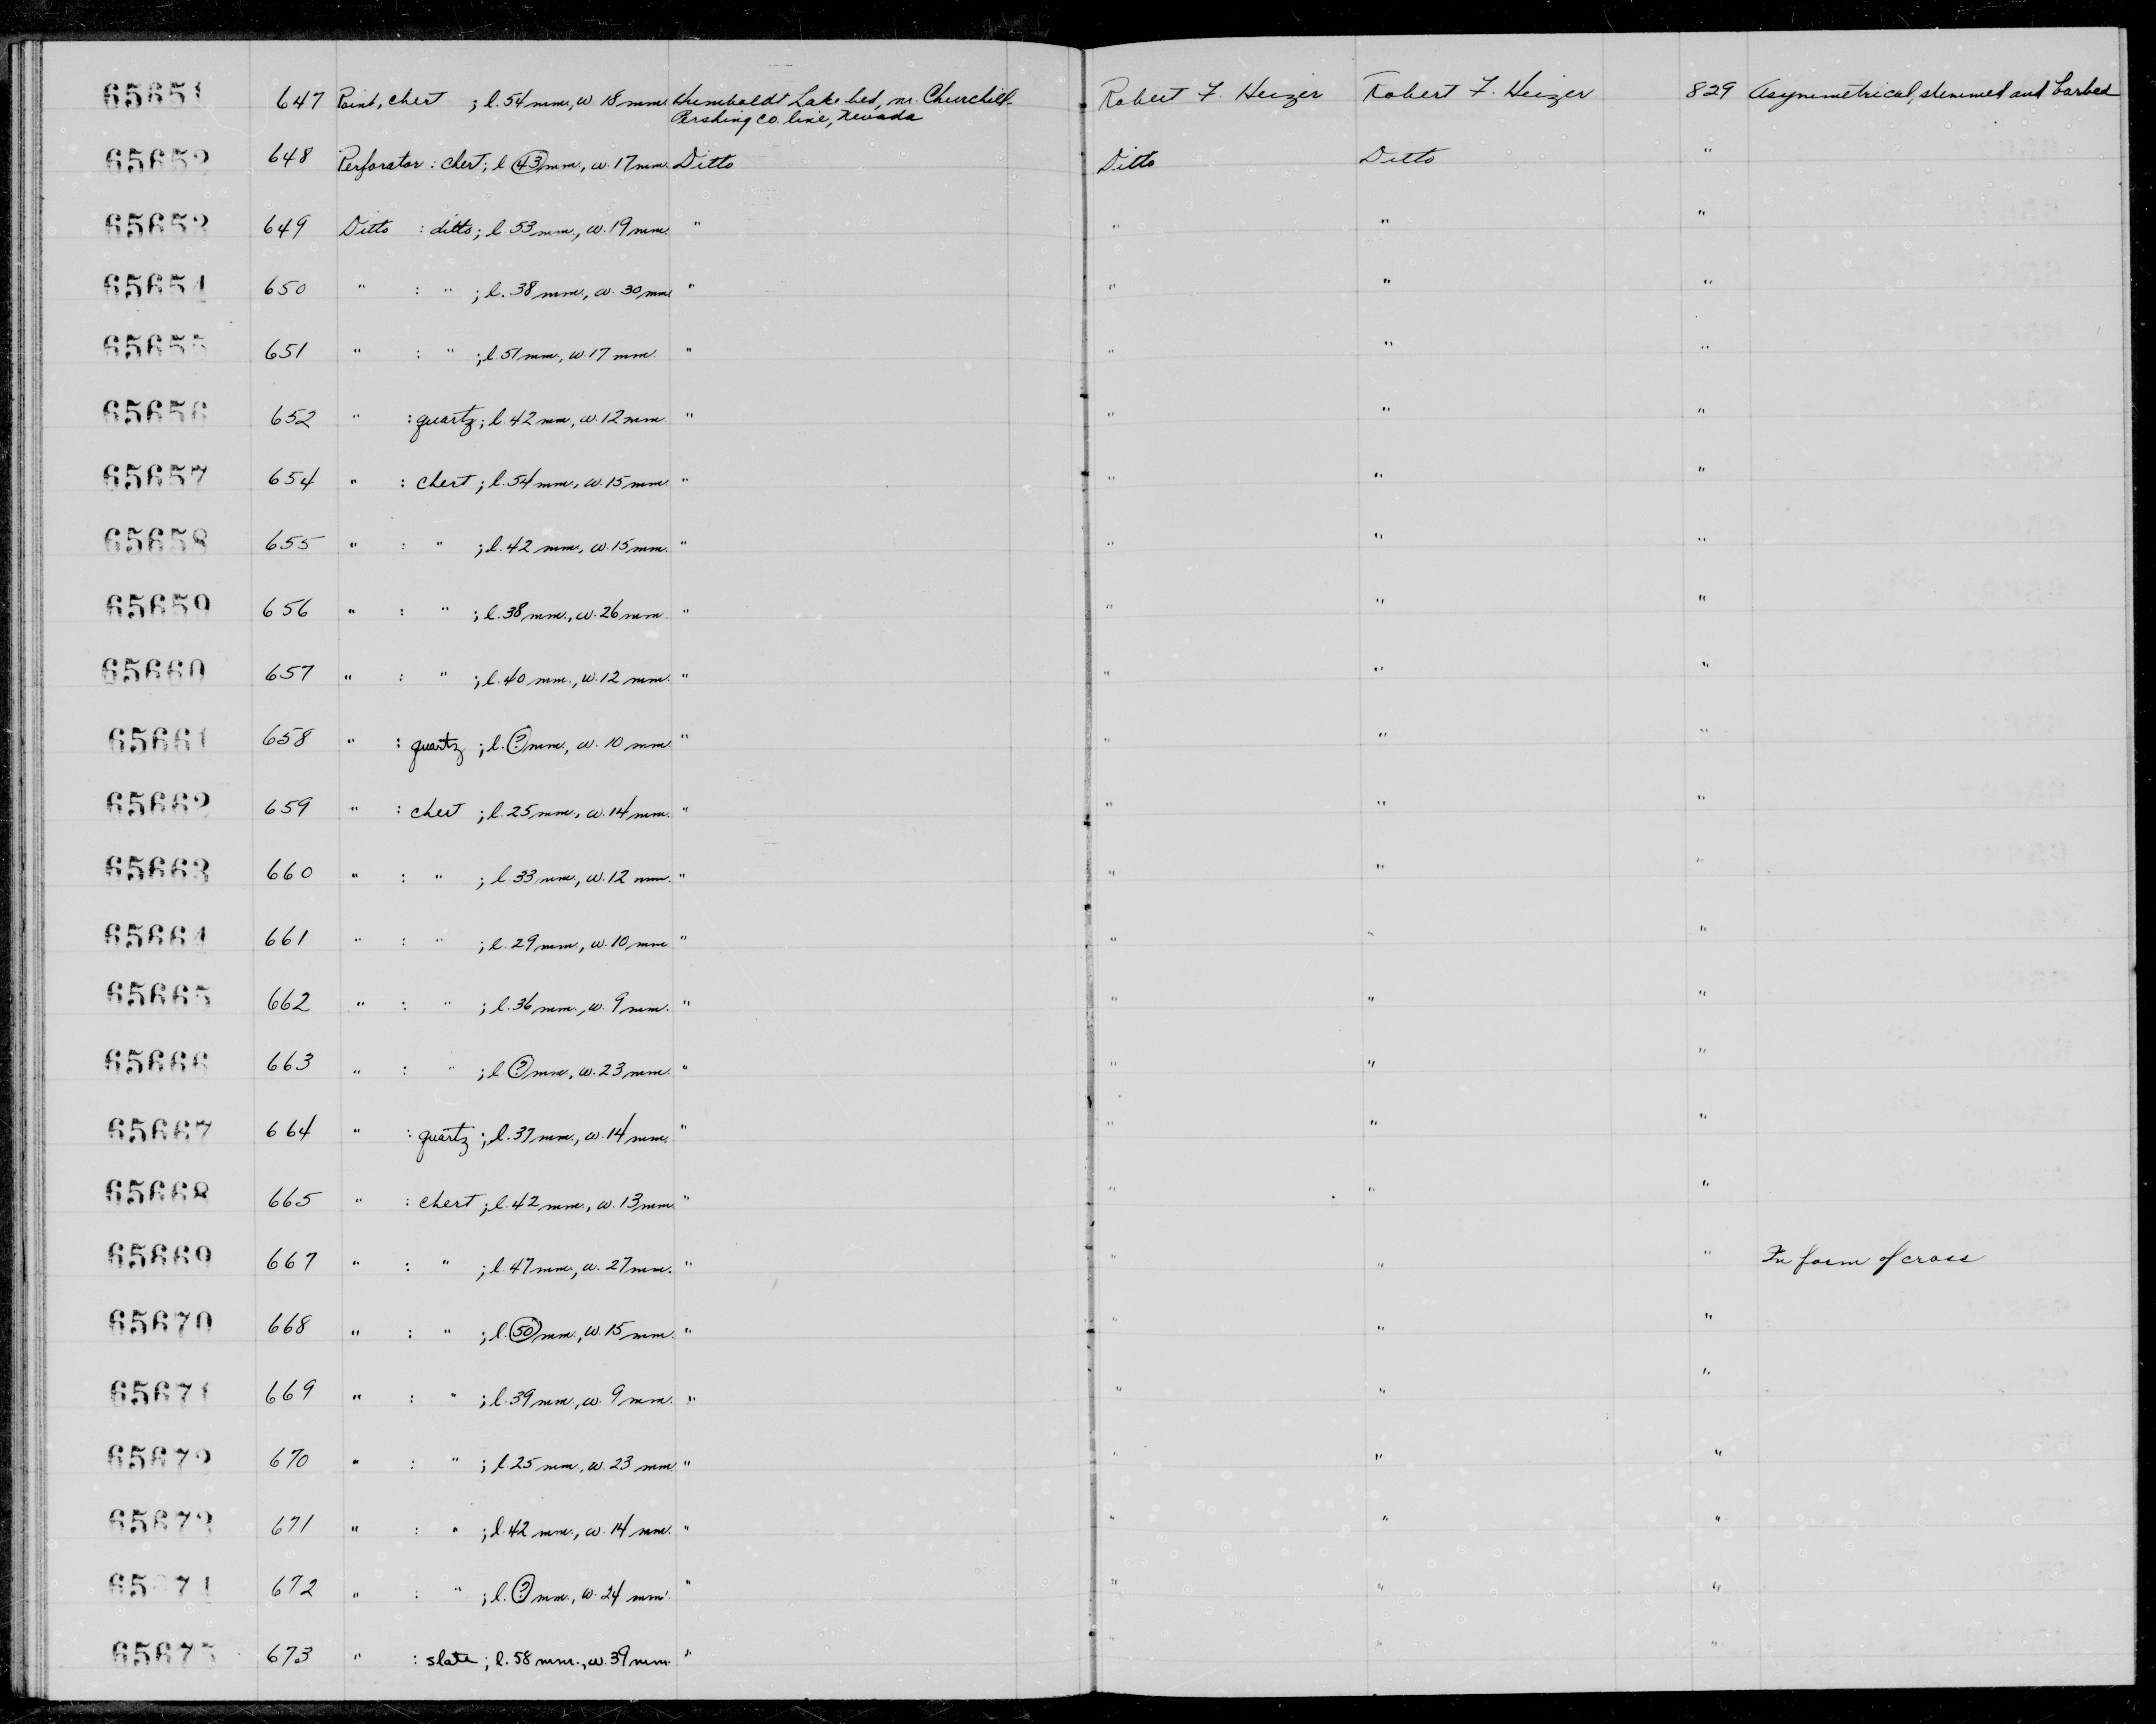 65651 647 Point, chert ; l. 54 mm., w 18 mm. Humboldt Lake bed, nr. Churchill- Robert F. Heizer Robert F. Heizer 829 Asymmetrical, stemmed and barbed
Pershing Co. line, Nevada
65652 648 Perforator : chert; l. 43 mm., w. 17 mm. Ditto Ditto Ditto "
65653 649 Ditto : ditto; l 53 mm., w. 19 mm. " " " "
65654 650 " : " ; l. 38 mm., w. 30 mm. " " " "
65655 651 " : " ; l. 51 mm., w. 17 mm. " " " "
65656 652 " : quartz; l. 42 mm, w. 12 mm. " " " "
65657 654 " : chert ; l. 54 mm., w. 15 mm. " " " "
65658 655 " : " ; l. 42 mm., w. 15 mm. " " " "
65659 656 " : " ; l. 38 mm., w. 26 mm. " " " "
65660 657 " : " ; l. 40 mm., w. 12 mm. " " " "
65661 658 " : quartz ; l. ? mm., w. 10 mm. " " " "
65662 659 " : chert ; l. 25 mm., w. 14 mm. " " " "
65663 660 " : " ; l. 33 mm, w. 12 mm. " " " "
65664 661 " : " ; l. 29 mm., w. 10 mm. " " " "
65665 662 " : " ; l. 36 mm., w. 9 mm. " " " "
65666 663 " : " ; l. ? mm., w. 23 mm. " " " "
65667 664 " : quartz ; l. 37 mm., w. 14 mm. " " " "
65668 665 " : chert ; l. 42 mm., w. 13 mm. " " " "
65669 667 " : " ; l. 47 mm., w. 27 mm. " " " " In form of cross
65670 668 " : " ; l. 50 mm., w. 15 mm. " " " "
65671 669 " : " ; l. 39 mm., w. 9 mm. " " " "
65672 670 " : " ; l. 25 mm., w. 23 mm. " " " "
65673 671 " : " ; l. 42 mm., w. 14 mm. " " " "
65674 672 " : " ; l. ? mm., w. 24 mm. " " " "
65675 673 " : slate ; l. 58 mm., w. 39 mm. " " " "